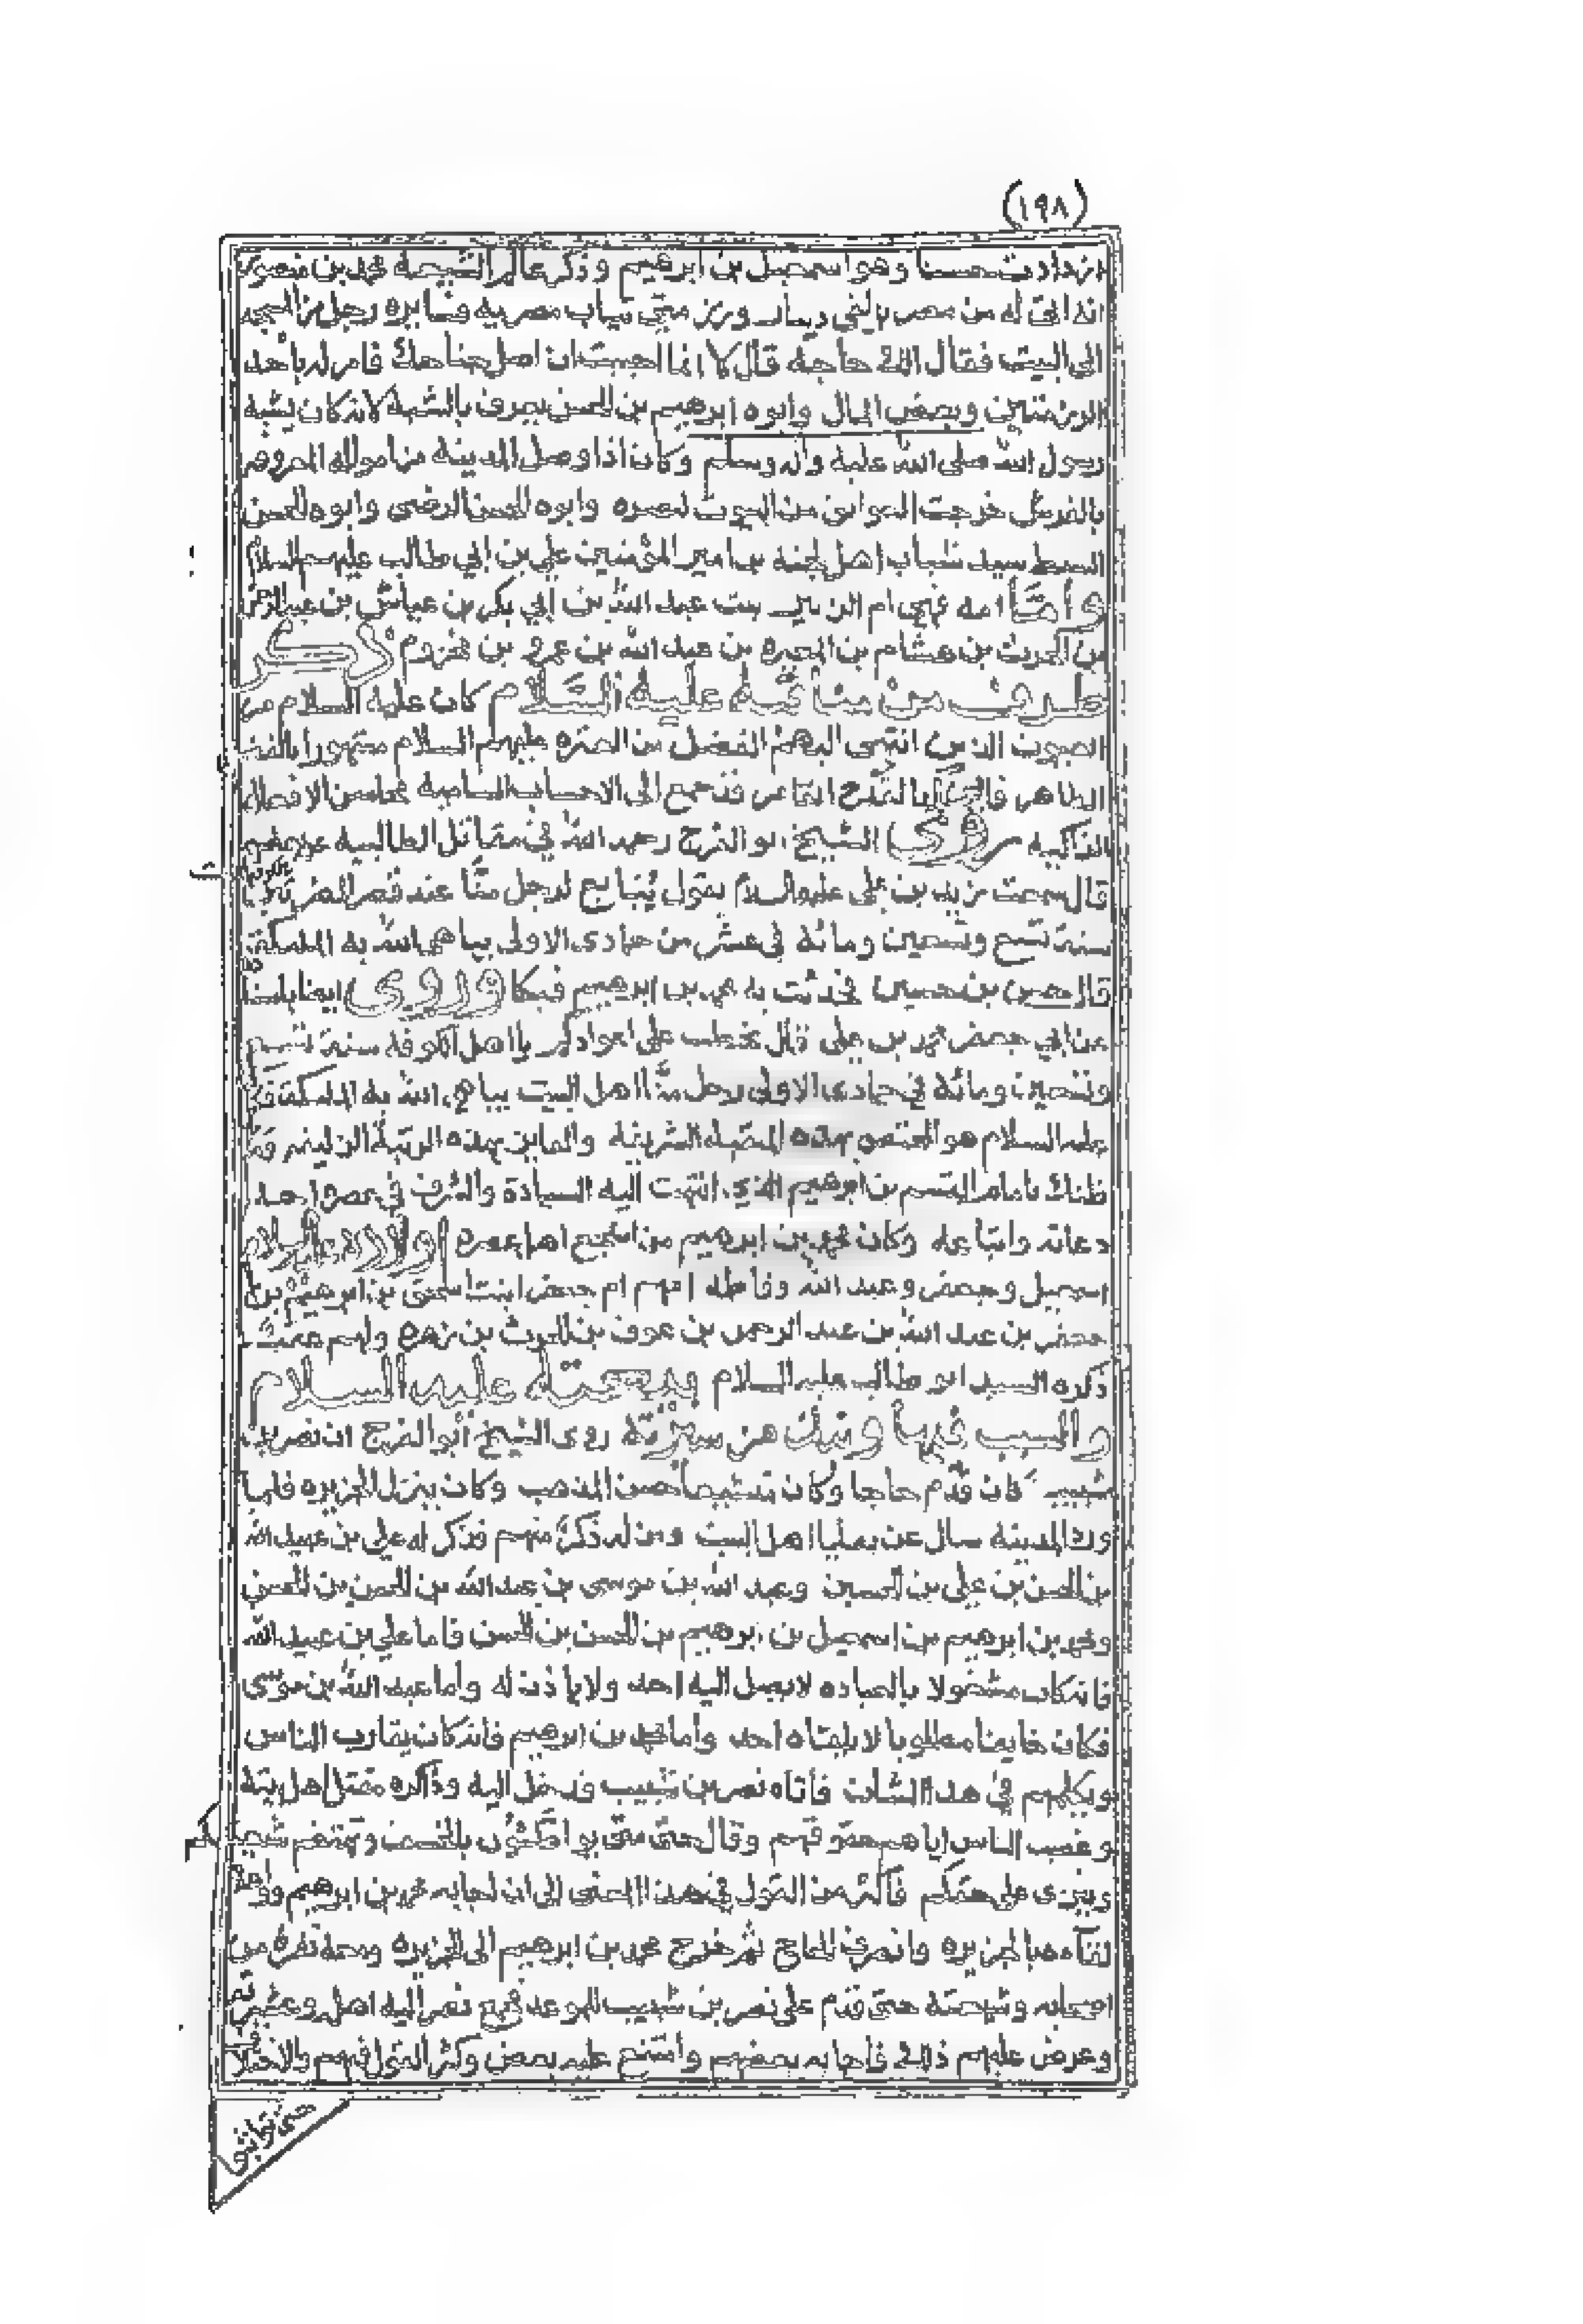 (١٩٨)
ازدادت حسنا وهو اسمعيل بن ابرهيم وذكر عالم الشيعة محمد بن منصور
انه اتى له من مصر بالفي دينار ورزمتي ثياب مصرية رجل من
الى البيت فقال الك حاجة قال لا انما احببت ان اصل جناحك فامر له باحد
الرزمتين وبعض المال وابوه ابرهيم بن الحسن يعرف بالشبه لانه كان يشبه
رسول الله صلى الله عليه واله وسلم وكان اذا وصل المدينة من امواله المعروفه
بالفرش خرجت العواتق من البيوت لتصره وابوه الحسن الرضى وابوه الحسن
السبط سيد شباب اهل الجنه بن امير المؤمنين علي بن ابي طالب عليهم السلام
واما امه فهي ام الزبير بنت عبد الله بن ابي بكر بن عياش بن عبد الرحمن
بن الحرث بن هشام بن المغيره بن عبد الله بن عمرو بن مخزوم ذكر
طرف من مناقبه عليه السلام كان عليه السلام من
الصوب الذين انتهى اليهم الفضل من العتره عليهم السلام مشهورا بالفضل
الظاهر قد جمع الى الاحساب السامية محاسن الافعال
الزاكيه روى الشيخ ابو الفرج رحمه الله في مقاتل الطالبيه
قال سمعت زيد بن علي عليه السلام يقول يبايع لرجل منا عند قصر
سنة تسع وتسعين ومائة في عشر من جمادى الاولى يباهي الله به الملائكة
قال حسن بن حسين فحدثت به محمد بن ابرهيم فبكا وروى ايضا باسناده
عن ابي جعفر محمد بن علي قال يخطب على اعوادكم يا اهل الكوفة سنة تسع
وتسعين ومائة في جمادى الاولى رجل منا اهل البيت يباهي الله به الملائكة
عليه السلام هو المخصوص بهذه الشريفة والفايز بهذه الرتبة
ظنك بامام القسم بن ابرهيم الذي انتهت اليه السيادة والشرف في عصره احد
دعاته واتباعه وكان محمد بن ابرهيم من اشجع اهل عصره اولاده عليه السلام
اسمعيل وجعفر وعبد الله وفاطمه امهم ام جعفر ابنت اسحق بن ابرهيم بن
جعفر بن عبد الله بن عبد الرحمن بن عوف بن الحرث بن زهره
ذكره السيد ابو طالب عليه السلام بيعته عليه السلام
والسبب فيها ونبذ من سيرته روى الشيخ ابو الفرج ان نصر بن
شبيب كان قدم حاجا وكان متشيعا حسن المذهب وكان ينزل الجزيره فلما
ورد المدينة سال عن بقايا اهل البيت ومن له ذكر منهم فذكر له علي بن عبيد الله
بن الحسن بن علي بن الحسين وعبد الله بن موسى بن عبد الله بن الحسن بن الحسن
ومحمد بن ابرهيم بن اسمعيل بن ابرهيم بن الحسن بن الحسن فاما علي بن عبيد الله
فانه كان مشغولا بالعباده لا يصل اليه احد ولا ياذن له واما عبد الله بن موسى
فكان خايفا مطلوبا لا يلقاه احد واما محمد بن ابرهيم فانه كان يقارب الناس
ويكلمهم في هذا الشان فاتاه نصر بن شبيب فدخل اليه وذاكره مقتل اهل بيته
وغصب الناس اياهم حقوقهم وقال حتى متى توطئون بالخسف وتهتضم شيعتكم
وينزى على حقكم فاكثر من القول في هذا المعنى الى ان اجابه محمد بن ابرهيم وواعده
لقاه بالجزيره وانصرف الحاج ثم خرج محمد بن ابرهيم الى الجزيره ومعه نفر من
اصحابه وشيعته حتى قدم على نصر بن شبيب للموعد فجمع نصر اليه اهله وعشيرته
وعرض عليهم ذلك فاجابه بعضهم وامتنع عليه بعض وكثر القول فيهم والاختلاف
حتى تواثبوا